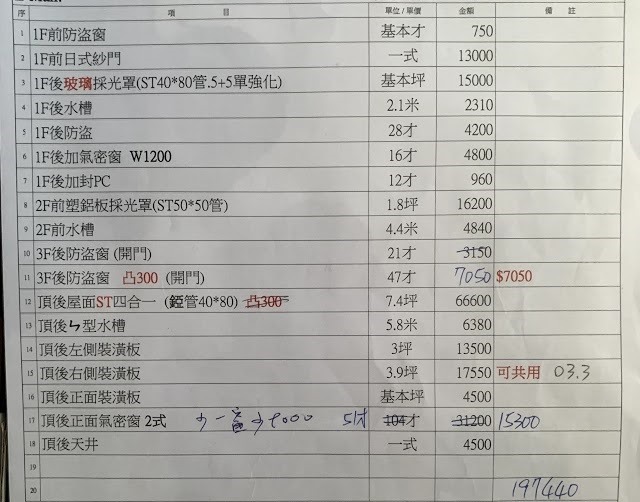 項 目 單位/單價 金額 備 註
1 1F前防盜窗 基本才 750
2 1F前日式紗門 一式 13000
3 1F後玻璃採光罩(ST40*80管.5+5單強化) 基本坪 15000
4 1F後水槽 2.1米 2310
5 1F後防盜 28才 4200
6 1F後加氣密窗 W1200 16才 4800
7 1F後加封PC 12才 960
8 2F前塑鋁板採光罩(ST50*50管) 1.8坪 16200
9 2F前水槽 4.4米 4840
10 3F後防盜窗 (開門) 21才 3150
11 3F後防盜窗 凸300 (開門) 47才 7050 $7050
12 頂後屋面ST四合一 (錏管40*80) 凸300 7.4坪 66600
13 頂後ㄣ型水槽 5.8米 6380
14 頂後左側裝潢板 3坪 13500
15 頂後右側裝潢板 3.9坪 17550 可共用 03.3
16 頂後正面裝潢板 基本坪 4500
17 頂後正面氣密窗 2式 少一窗 51才 104才 31200 15300
18 頂後天井 一式 4500
19
20 197440